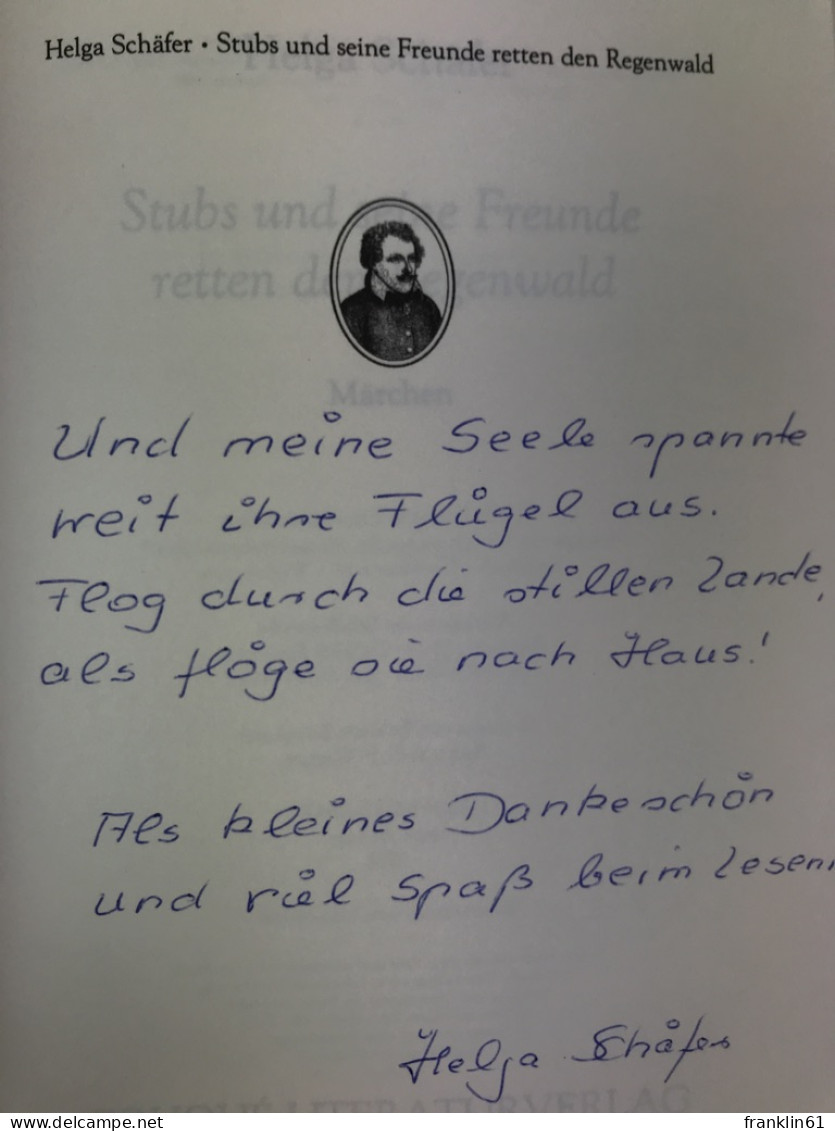 Helga Schäfer · Stubs und seine Freunde retten den Regenwald
Stubs und seine Freunde
retten den Regenwald
Märchen
Und meine Seele spannte
weit ihre Flügel aus.
Flog durch die stillen Lande,
als flöge sie nach Haus!
Als kleines Dankeschön
und viel Spaß beim Lesen
Helga Schäfer
LITERATURVERLAG
franklin61